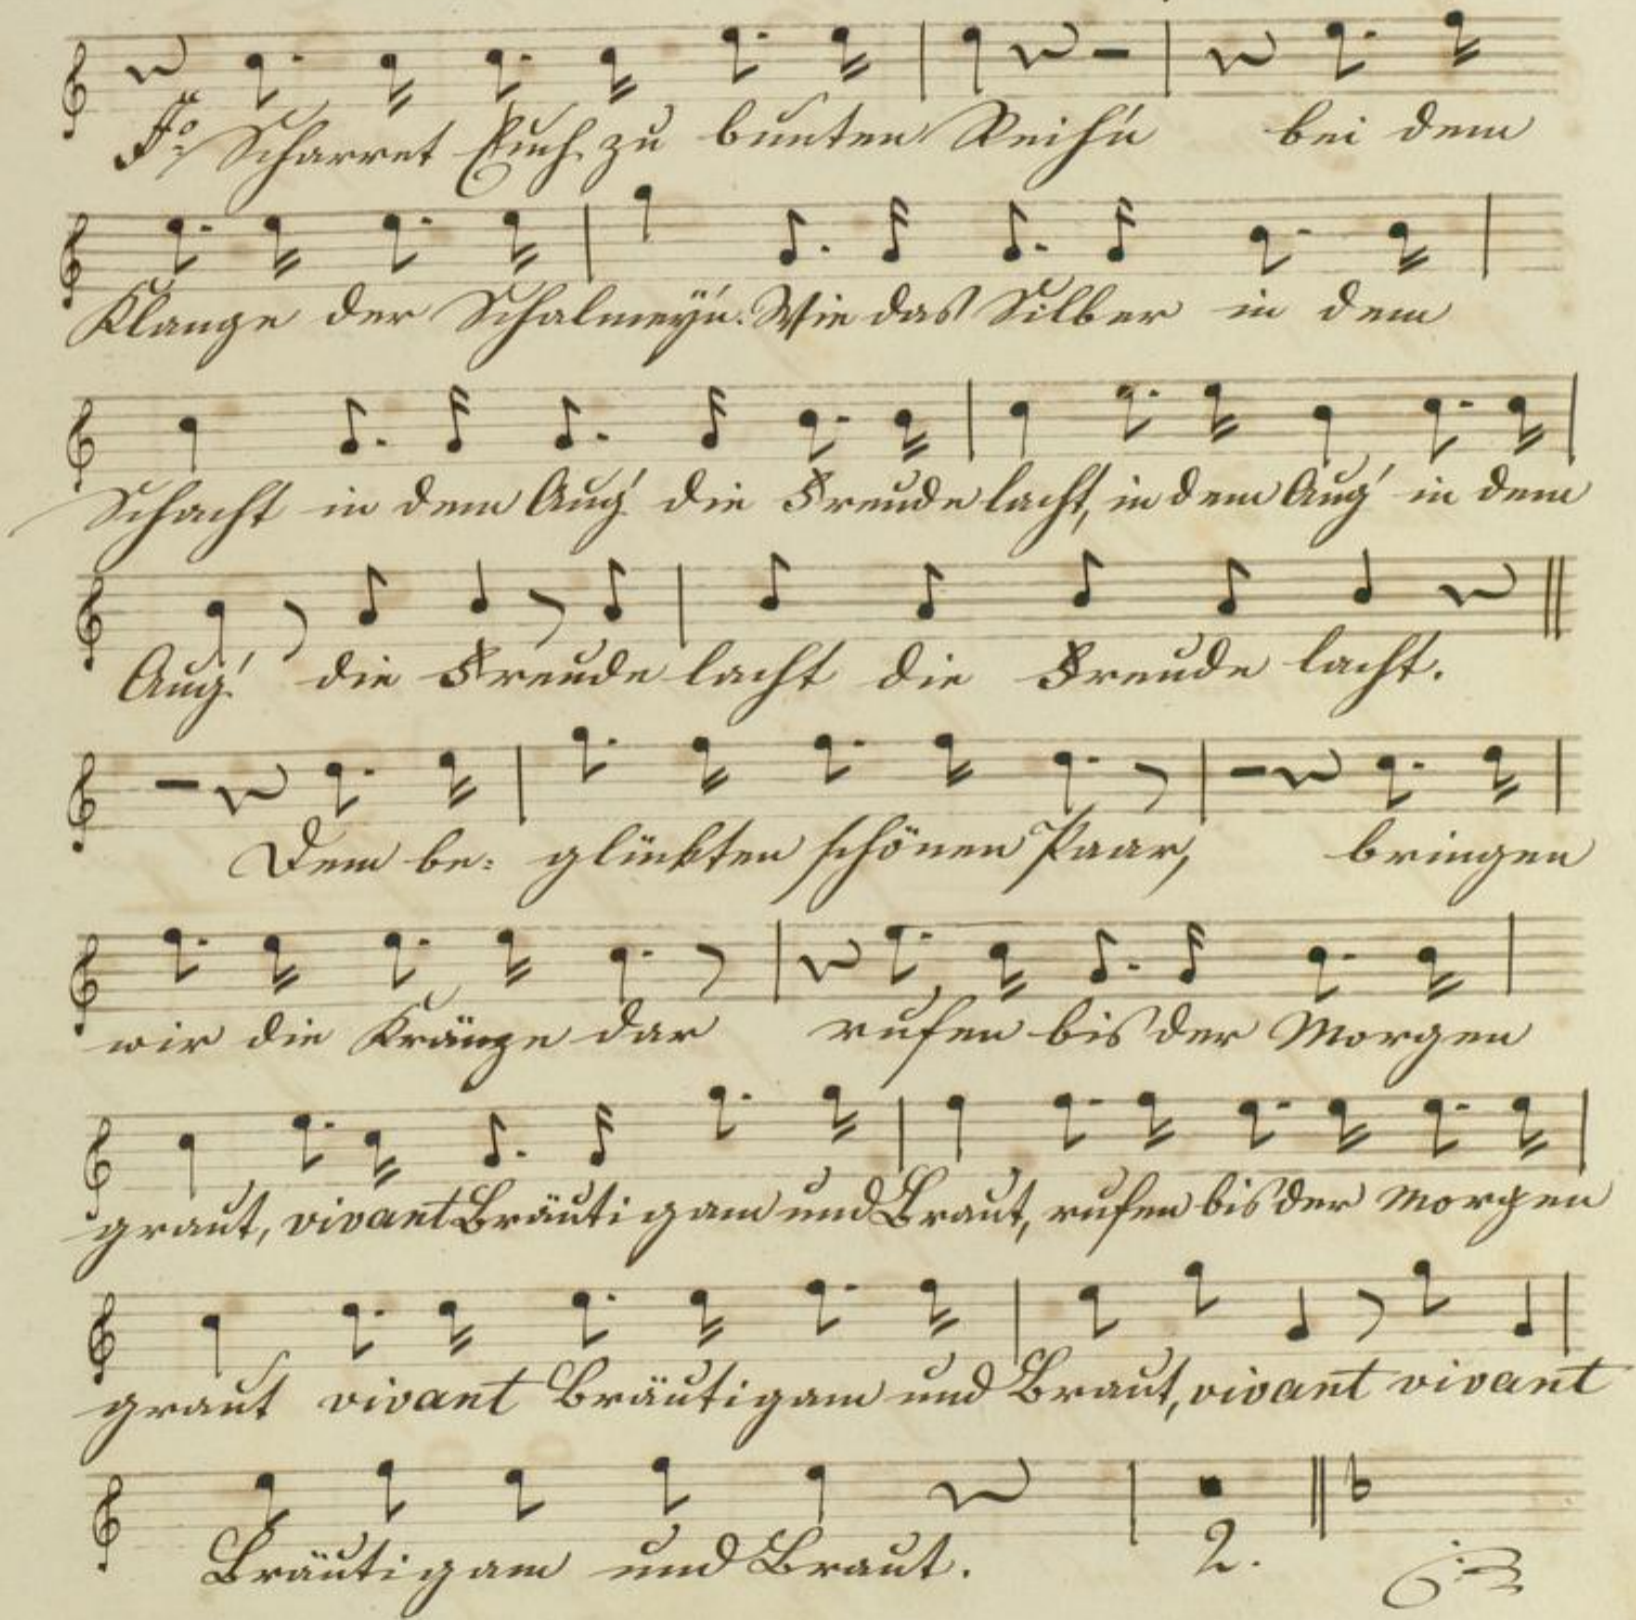 Fo: Scharret Euch zu bunten Reih'n bei dem
Klange der Schalmey'n. Wie das Silber in dem
Schacht in dem Aug' die Freude lacht, in dem Aug' in dem
Aug' die Freude lacht die Freude lacht.
Dem be: glückten schönen Paar, bringen
wir die Kränze dar rufen bis der Morgen
graut, vivant Bräutigam und Braut, rufen bis der Morgen
graut vivant Bräutigam und Braut, vivant vivant
Bräutigam und Braut. 2.